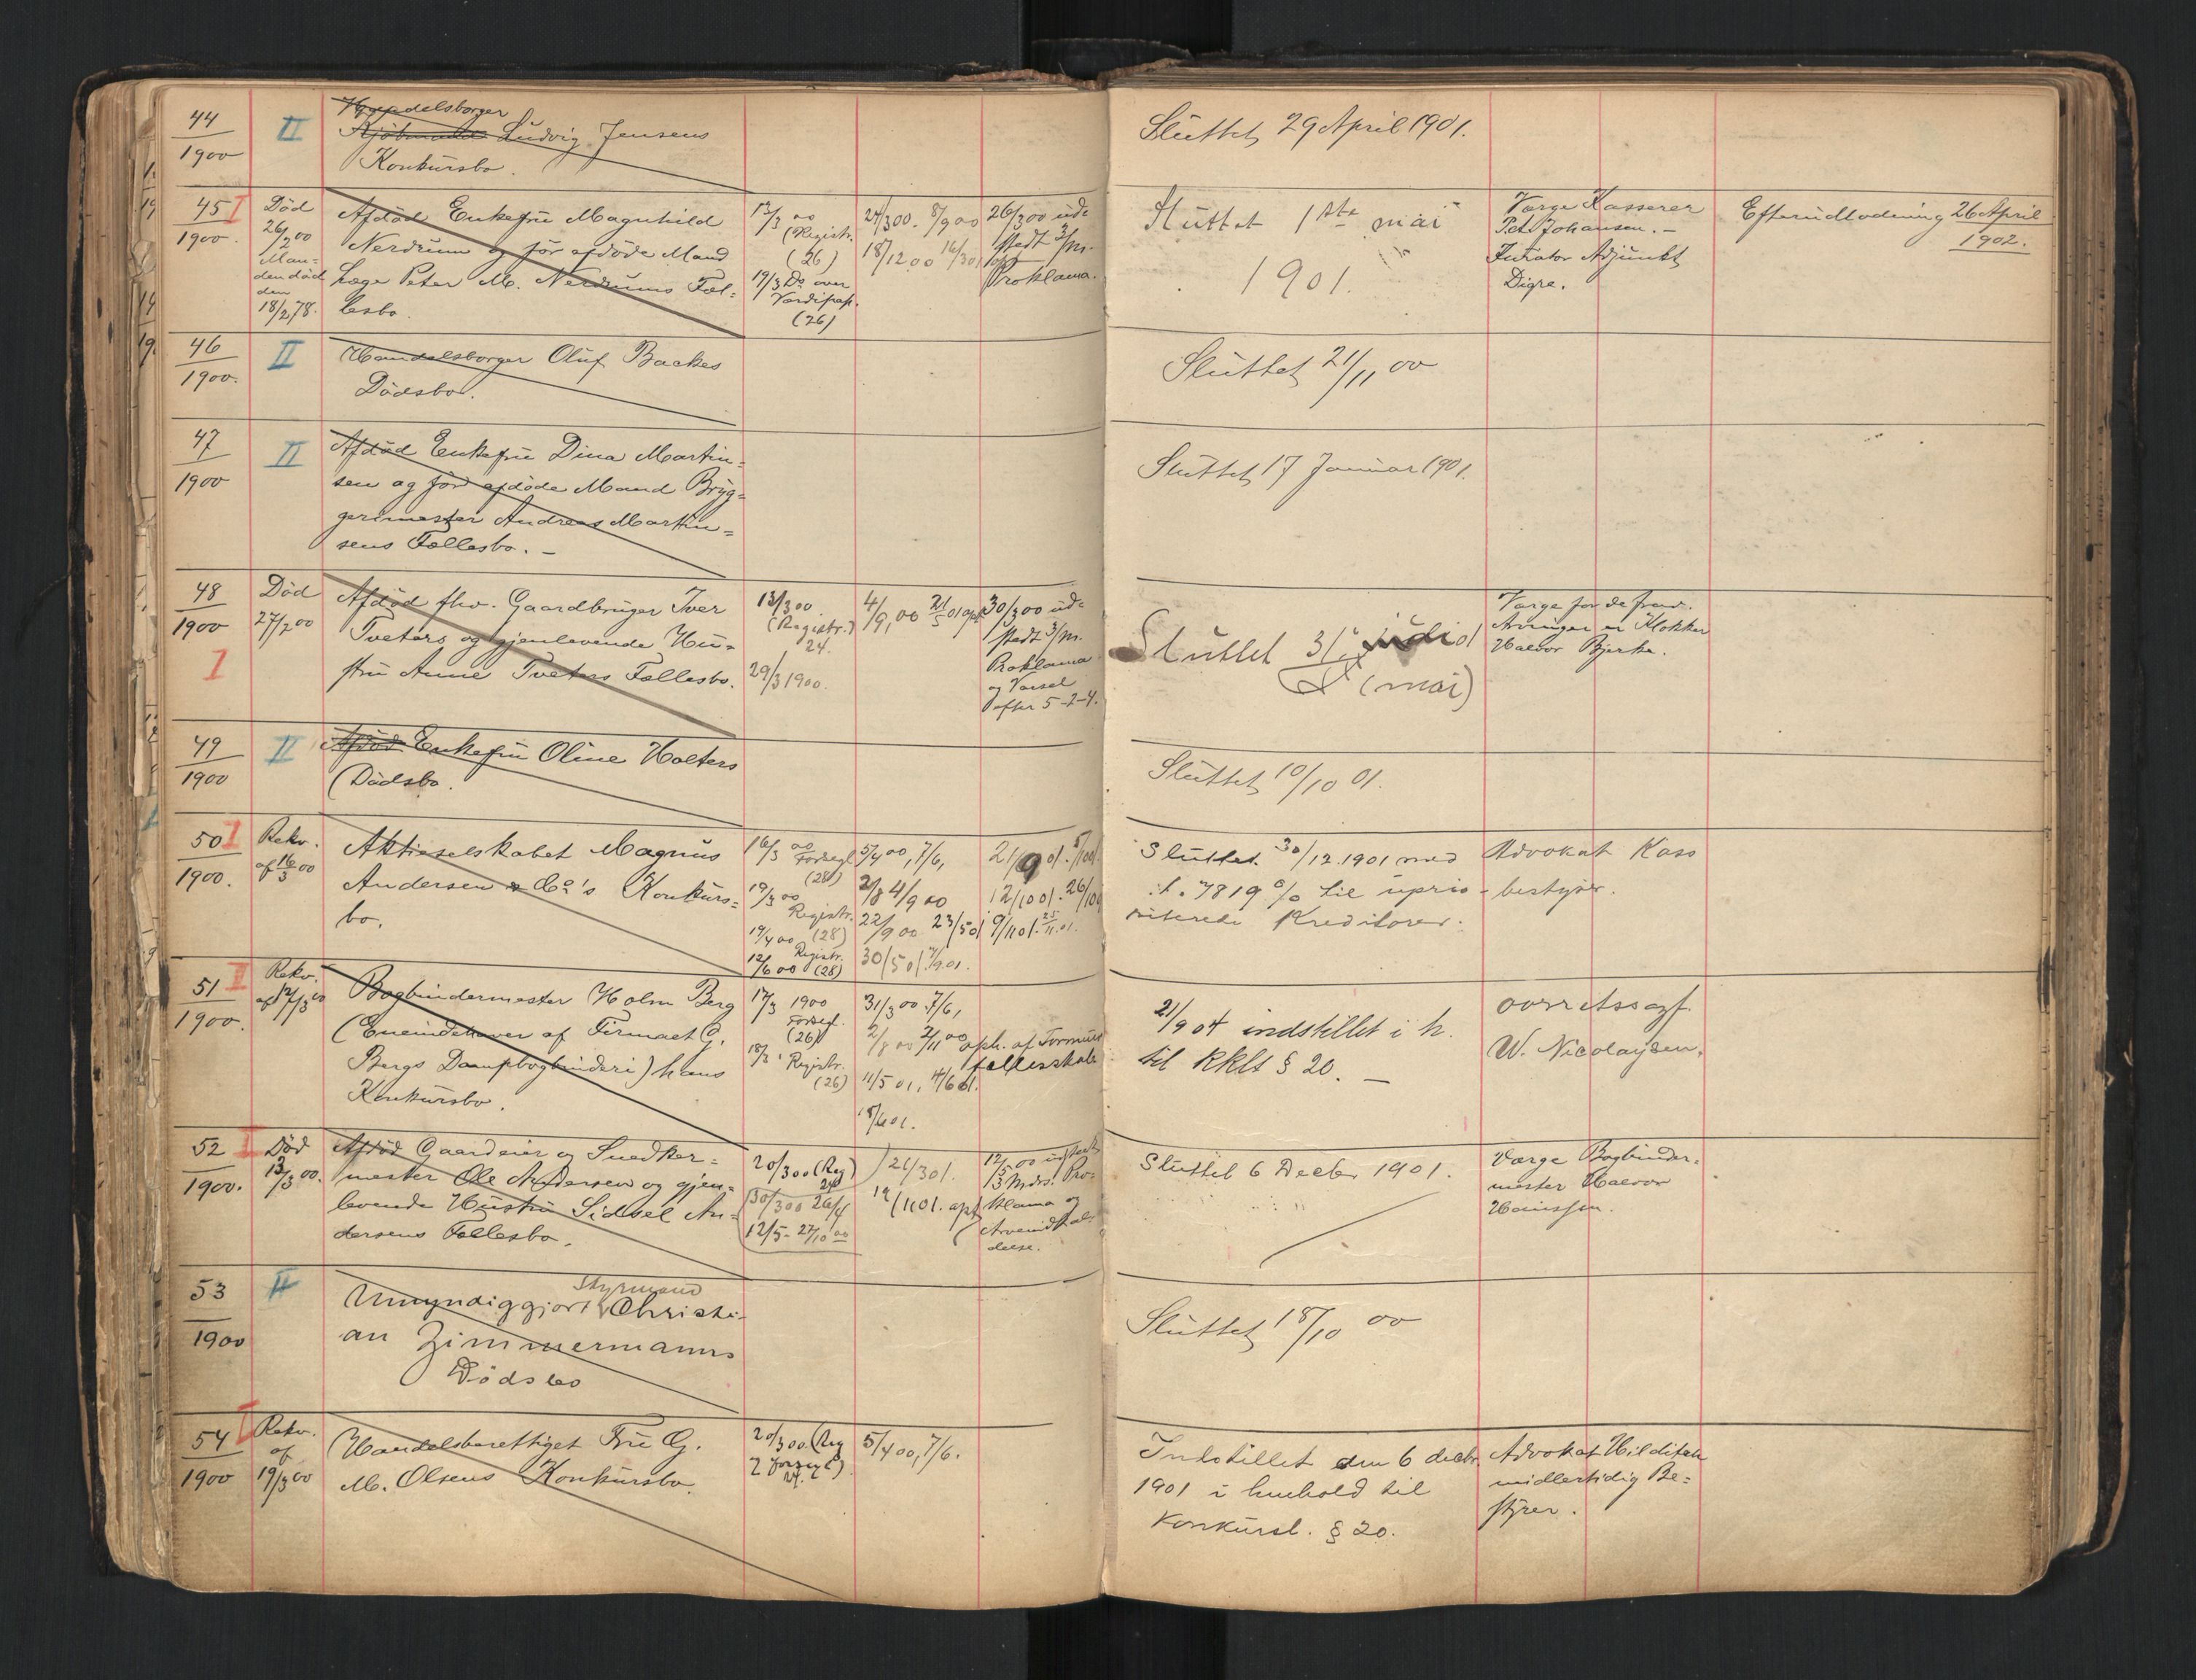 44
1900
II
Handelsborger
Kjøbmand Ludvig Jensens
Konkursbo.
Sluttet 29 April 1901.
45 I
1900.
Död
26/2 00
Man=
den död
den
18/2 78.
Afdöd Enkefru Magnhild
Nerdrum og för afdöde Mand
Læge Peter M. Nerdrums Fæl=
lesbo.
13/3 00
(Registr.
(26)
19/3 Do over
Værdipap.
(26)
24/3 00. 8/9 00
18/12 00
26/3 00 ud=
stedt 3/m.
Proklama.
Sluttet 1ste mai
1901.
Værge Kasserer
Pet. Johansen. -
Kurator Adjunkt
Digre.
Efterudlodning 26 April
1902.
46
1900.
II
Handelsborger Oluf Backes
Dödsbo.
Sluttet 21/11 00
47
1900
II
Afdöd Enkefru Dina Martin=
sen og för afdöde Mand Bryg=
gerimester Andreas Martin=
sens Fællesbo. -
Sluttet 17 Januar 1901.
48
1900
I
Död
27/2 00
Afdöd fhv. Gaardbruger Iver
Tveters og gjenlevende Hu=
stru Anne Tveters Fællesbo.
13/3 00.
(Registr.)
24.
29/3 1900.
4/9, 00
30/3 00 ud=
stedt 3/m.
Proklama
og Varsel
efter 5-2-4.
Sluttet 31/
(mai)
Værge for de frav.
Arvinger er Klokker
Halvor Bjerke.
49
1900
II
Afdöd Enkefru Oline Holters
Dödsbo.
Sluttet 10/10 01.
50 I
1900.
Rekv.
af 16/3 00
Aktieselskabet Magnus
Andersen & Co's Konkurs=
bo.
16/3 00
Forsegl.
(28)
19/3 00
Registr.
19/4 00 (28)
Registr.
12/6 00 (28)
5/4 00, 7/6,
2/8 4/9 00
22/9 00 23/5 01
30/5 01.
21/9 01.
12/10 01. 26/10
9/11 01. 25/11 01.
Sluttet 30/12.1901 med
7819 % til uprio-
riterede Kreditorer.
Advokat Kaso
bestyrer.
51 I
1900.
Rekv.
af 17/3 00
Bogbindermester Holm Berg
(Eneindehaver af Firmaet G.
Bergs Dampbogbinderi) hans
Konkursbo.
17/3 1900
Forsegl.
(26)
18/3 Registr.
(26)
31/3 00. 7/6,
2/8 00 2/11 00 oph. af Formues
fællesskab
11/5 01, 4/6 01.
21/9 04 indstillet i h.
til kklt § 20. -
ovrretssagf.
W. Nicolaysen.
52 I
1900.
Död
13/3 00.
Afdöd Gaardeier og Snedker=
mester Ole Andersen og gjen=
levende Hustru Sidsel An=
dersens Fællesbo.
20/3 00 (Reg)
30/3 00 26/4
12/5 - 27/10 00
26/3 01.
12/5 00 udstedt
3 Mdrs. Pro=
klama og
Arveindkal=
delse.
Sluttet 6 Decbr 1901.
Værge Bogbinder=
mester Halvor
53
1900
II
Styrmand
Umyndiggjort Christi-
an Zimmermanns
Dödsbo
Sluttet 18/10 00
54 I
1900
Rekv.
af
19/3 00
Handelsberettiget Fru G.
M. Olsens Konkursbo.
20/3 00. (Reg
5/4 00, 7/6.
Indstillet den 6 decbr
1901 i henhold til
Konkursl. § 20.
Advokat Hilditch
midlertidig Be=
styrer.